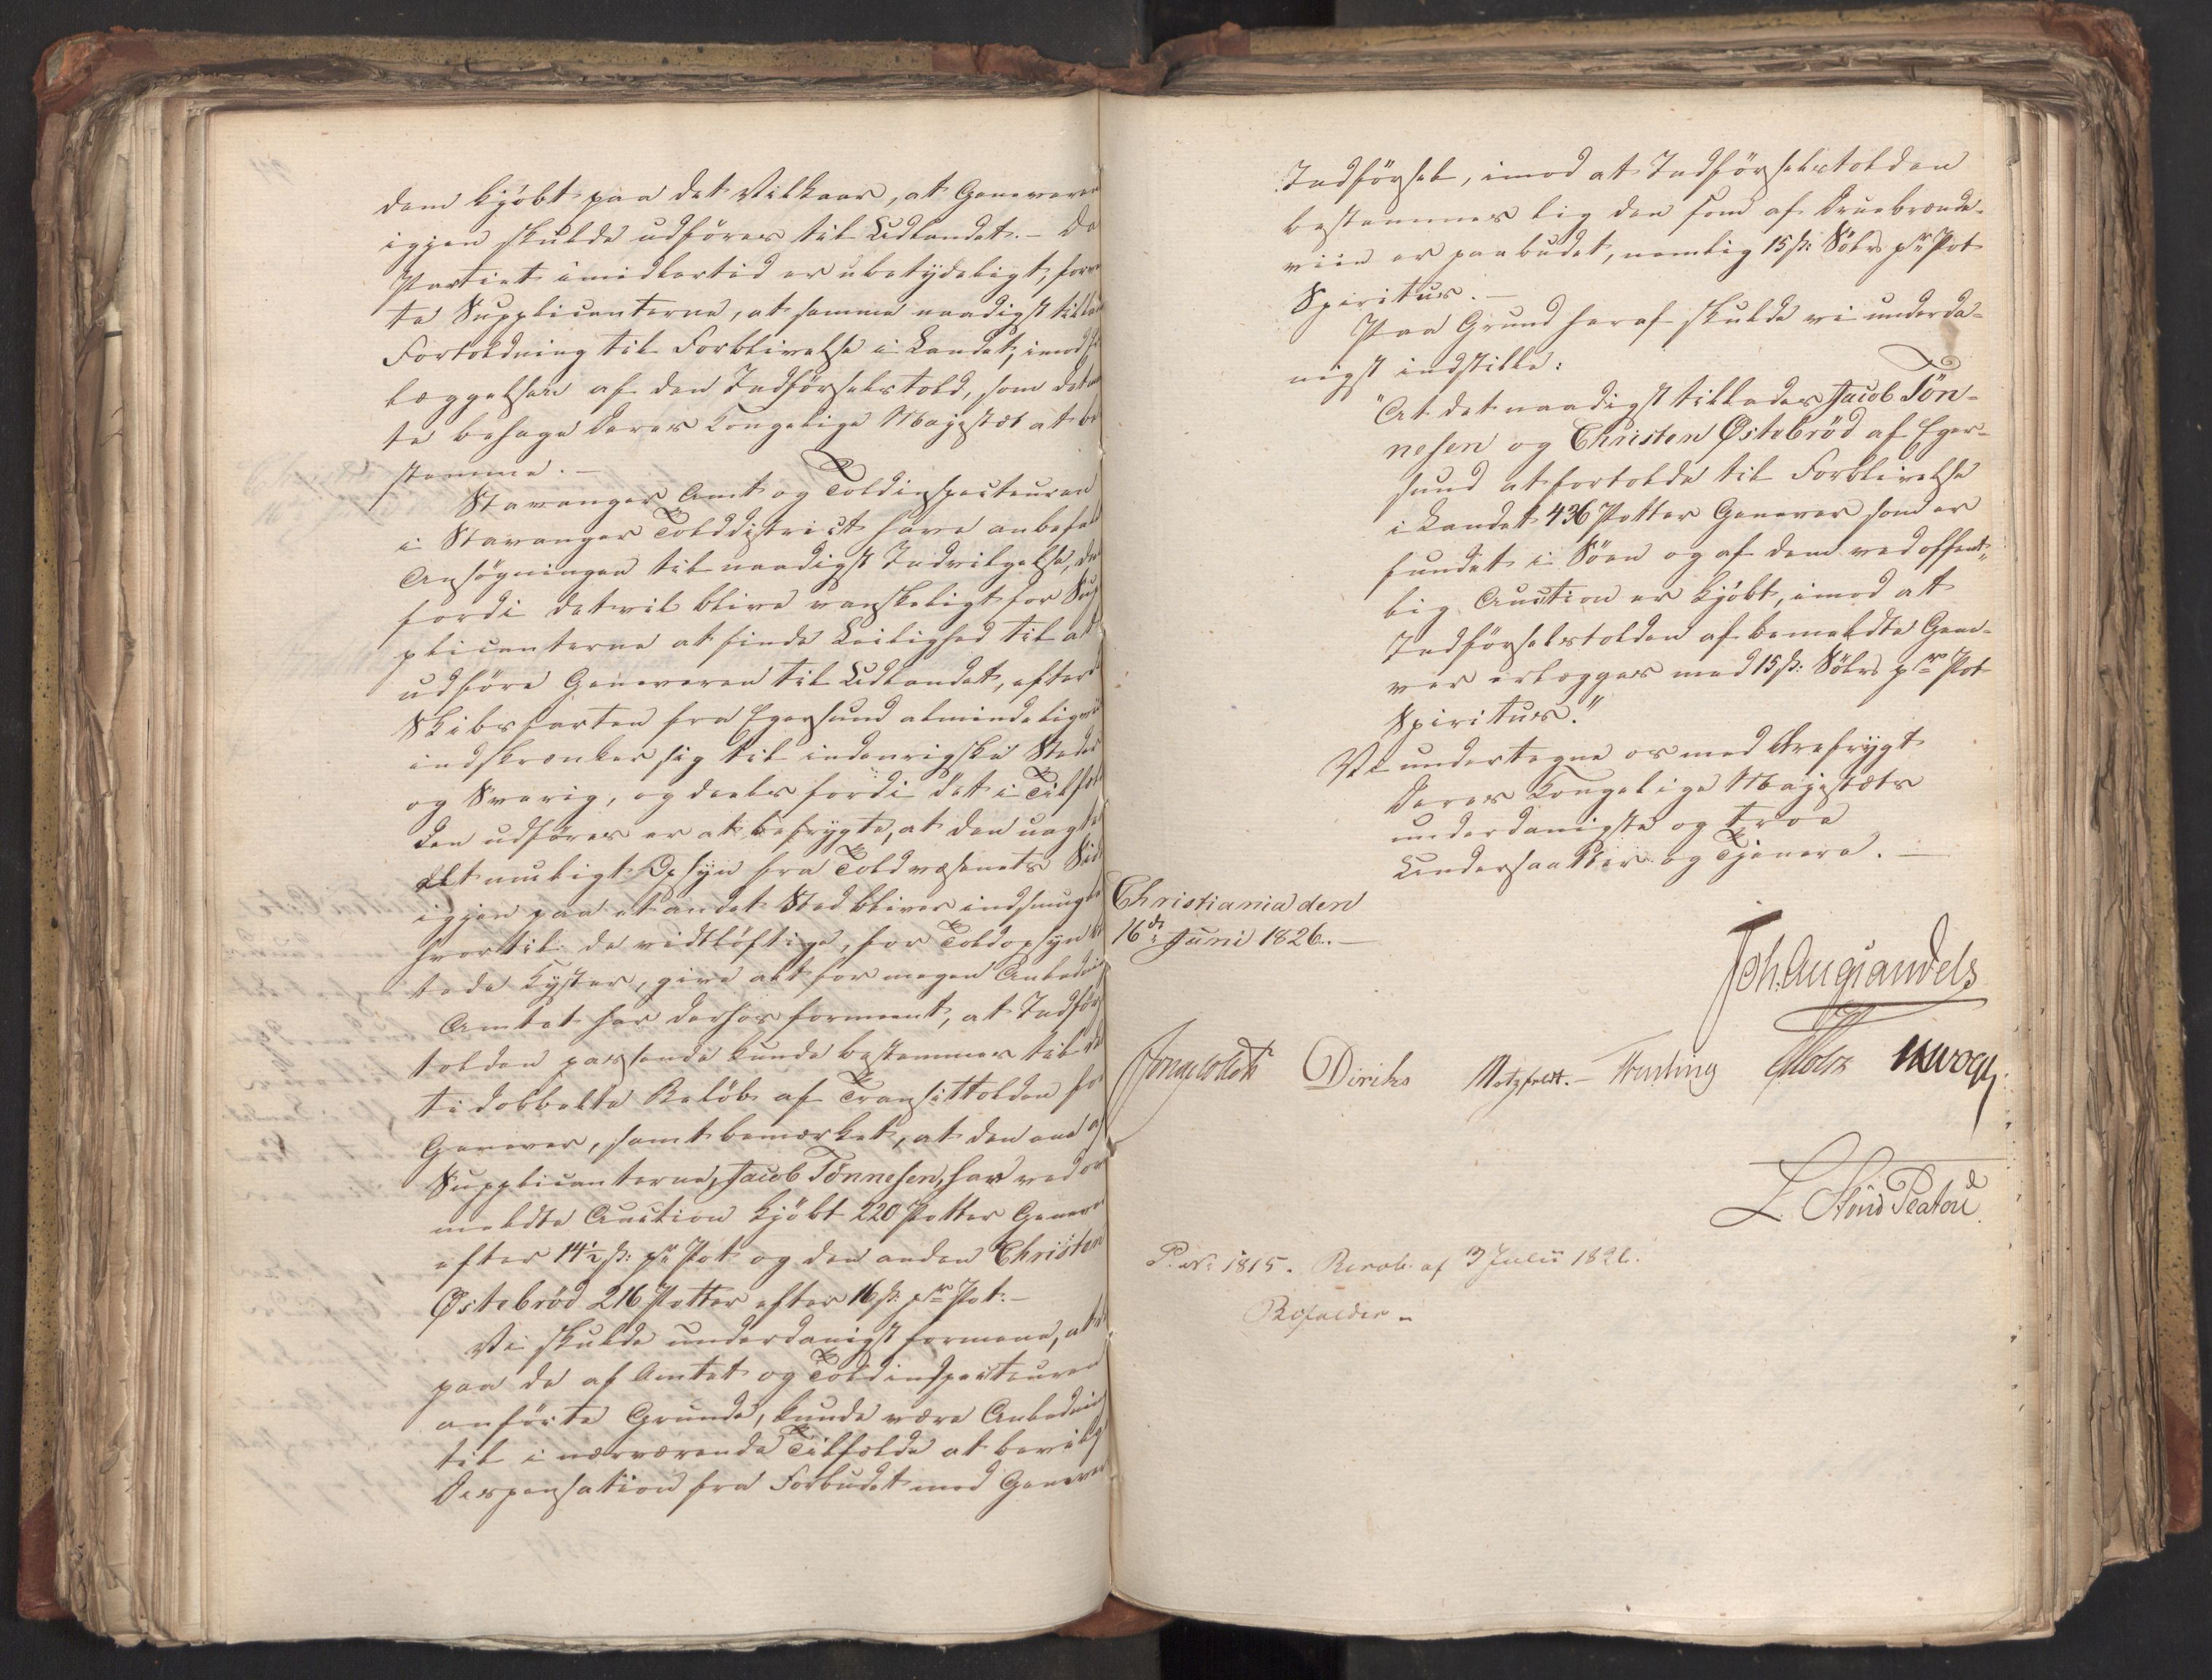 dem kjöbt paa det Vilkaar, at Geneveren
igjen skulde udföres til Udlandet. – Da
Partiet imidlertid er ubetydeligt,
te Supplicanterne, at samme naadigst
Fortoldning til Forblivelse i Landet, imod
læggelsen af den Indförselstold, som det
te behage Deres Kongelige Majestæt at be
stemme. –
Stavanger Amt og Toldinspecteuren
i Stavanger Tolddistrict have anbefal
Ansögningen til naadigst Indvilgelse,
fordi det vil blive vanskeligt for Sup
plicanterne at finde Leilighed til at
udföre Geneveren til Udlandet, efter
Skibsfarten fra Egersund almindeligvi
indskrænker sig til indenrigske Steder
og Sverig, og deels fordi det i Tilfæl
den udföres er at befrygte, at den uagt
alt muligt Opsyn fra Toldvæsenets Sid
igjen paa et andet Sted bliver indsmugle
hvortil de vidtlöftige, for Toldopsyn
tede Kyster, give alt for megen Anledni
Amtet har derhos formeent, at Indför
tolden passende kunde bestemmes til
ti dobbelte Belöb af Transittolden for
Genever, samt bemærket, at den ene af
Supplicanterne, Jacob Tönnesen, har ved
meldte Auction kjöbt 220 Potter Genever
efter 14½ ß: pr Pot og den anden Christen
Östebröd 216 Potter efter 16 ß: pr Pot. –
Vi skulde underdanigst formene, at
paa de af Amtet og Toldinspecteuren
anförte Grunde, kunde være Anledning
til i nærværende Tilfælde at bevilg
Dispensation fra Forbudet mod Genever
Indförsel, imod at Indförselstolden
bestemmes lig den som af Druebrænde-
viin er paabudet, nemlig 15 ß: Sölv pr Pot
Spiritus. –
Paa Grund heraf skulde vi underda-
nigst indstille:
"At det naadigst tillades Jacob Tön-
nesen og Christen Östebröd af Eger-
sund at fortolde til Forblivelse
i Landet 436 Potter Genever som er
fundet i Söen og af dem ved offent-
lig Auction er kjöbt, imod at
Indförselstolden af bemeldte Gene-
ver erlægges med 15 ß: Sölv pr Pot
Spiritus."
Vi undertegne os med Ærefrygt
Deres Kongelige Majestæts
underdanigste og troe
Undersaatter og Tjenere. –
Christiania den
16de Juni 1826. –
Joh. Aug Sandels
Jonas Collett Diriks Motzfeldt. – Treschow Holst
P. No 1815. Resol. af 3 Julii 1826.
Bifaldes –